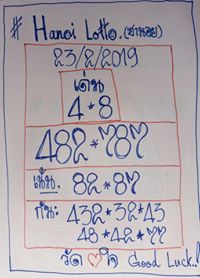 # Hanoi Lotto. (ฮานอย)
23/2/2019
เด่น
4*8
482*787
เน้น. 82*87
กัน: 432*32*43
48*42*77
วัด ♡ ใจ Good Luck..!